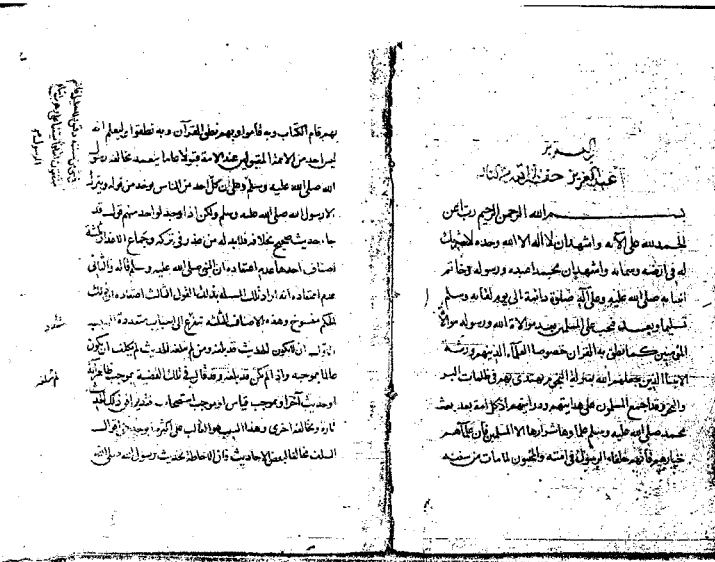 عبد العزيز
بســـم الله الرحمن الرحيم رب اعن
الحمد لله على الآئه واشهد ان لا اله الا الله وحده لا شريك
له في ارضه وسمائه واشهد ان محمدا عبده ورسوله وخاتم
انبيائه صلى الله عليه وعلى آله صلوة دائمة الى يوم لقائه وسلم
تسليما وبعد فيجب على المسلمين بعد موالاة الله ورسوله موالاة
المؤمنين كما نطق به القران خصوصا العلماء الذين هم ورثة
الانبيا الذين جعلهم الله بمنزلة النجوم يهتدى بهم في ظلمات البر
والبحر وقد اجمع المسلمون على هدايتهم ودرايتهم اذ كل امة بعد بعث
محمد صلى الله عليه وسلم علماوها شرارها الا المسلمين فان علماءهم
خيارهم فانهم خلفاء الرسول في امته والمحيون لما مات من سنته
بهم قام الكتاب وبه قاموا وبهم نطق القرآن وبه نطقوا وليعلم انه
ليس احد من الائمة المقبولين عند الامة قبولا عاما يتعمد مخالفة رسول
الله صلى الله عليه وسلم وعلى ان كل احد من الناس يوخذ من قوله ويترك
الا رسول الله صلى الله عليه وسلم ولكن اذا وجد لواحد منهم قول قد
جاء حديث صحيح بخلافه فلا بد له من عذر في تركه وجماع الاعذار ثلثة
اصناف احدها عدم اعتقاده ان النبي صلى الله عليه وسلم قاله والثاني
عدم اعتقاده انه اراد تلك المسئلة بذلك القول الثالث اعتقاده ان ذلك
الحكم منسوخ وهذه الاصناف الثلثة تتفرع الى اسباب متعددة السبب
ان لا يكون الحديث قد بلغه ومن لم يبلغه الحديث لم يكلف ان يكون
عالما بموجبه واذا لم يكن قد بلغه وقد قال في تلك القضية بموجب ظاهر آية
او حديث آخر او بموجب قياس او بموجب استصحاب فقد يوافق ذلك الحديث
تارة ويخالفه اخرى وهذا السبب هو الغالب على اكثر ما يوجد من اقوال
السلف مخالفا لبعض الاحاديث فان الاحاطة بحديث رسول الله صلى الله